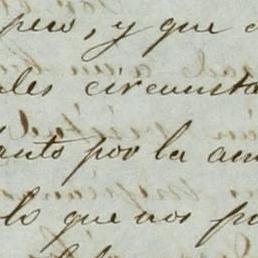 pero, y que
ales circunsta
anto por la am
lo que nos pr